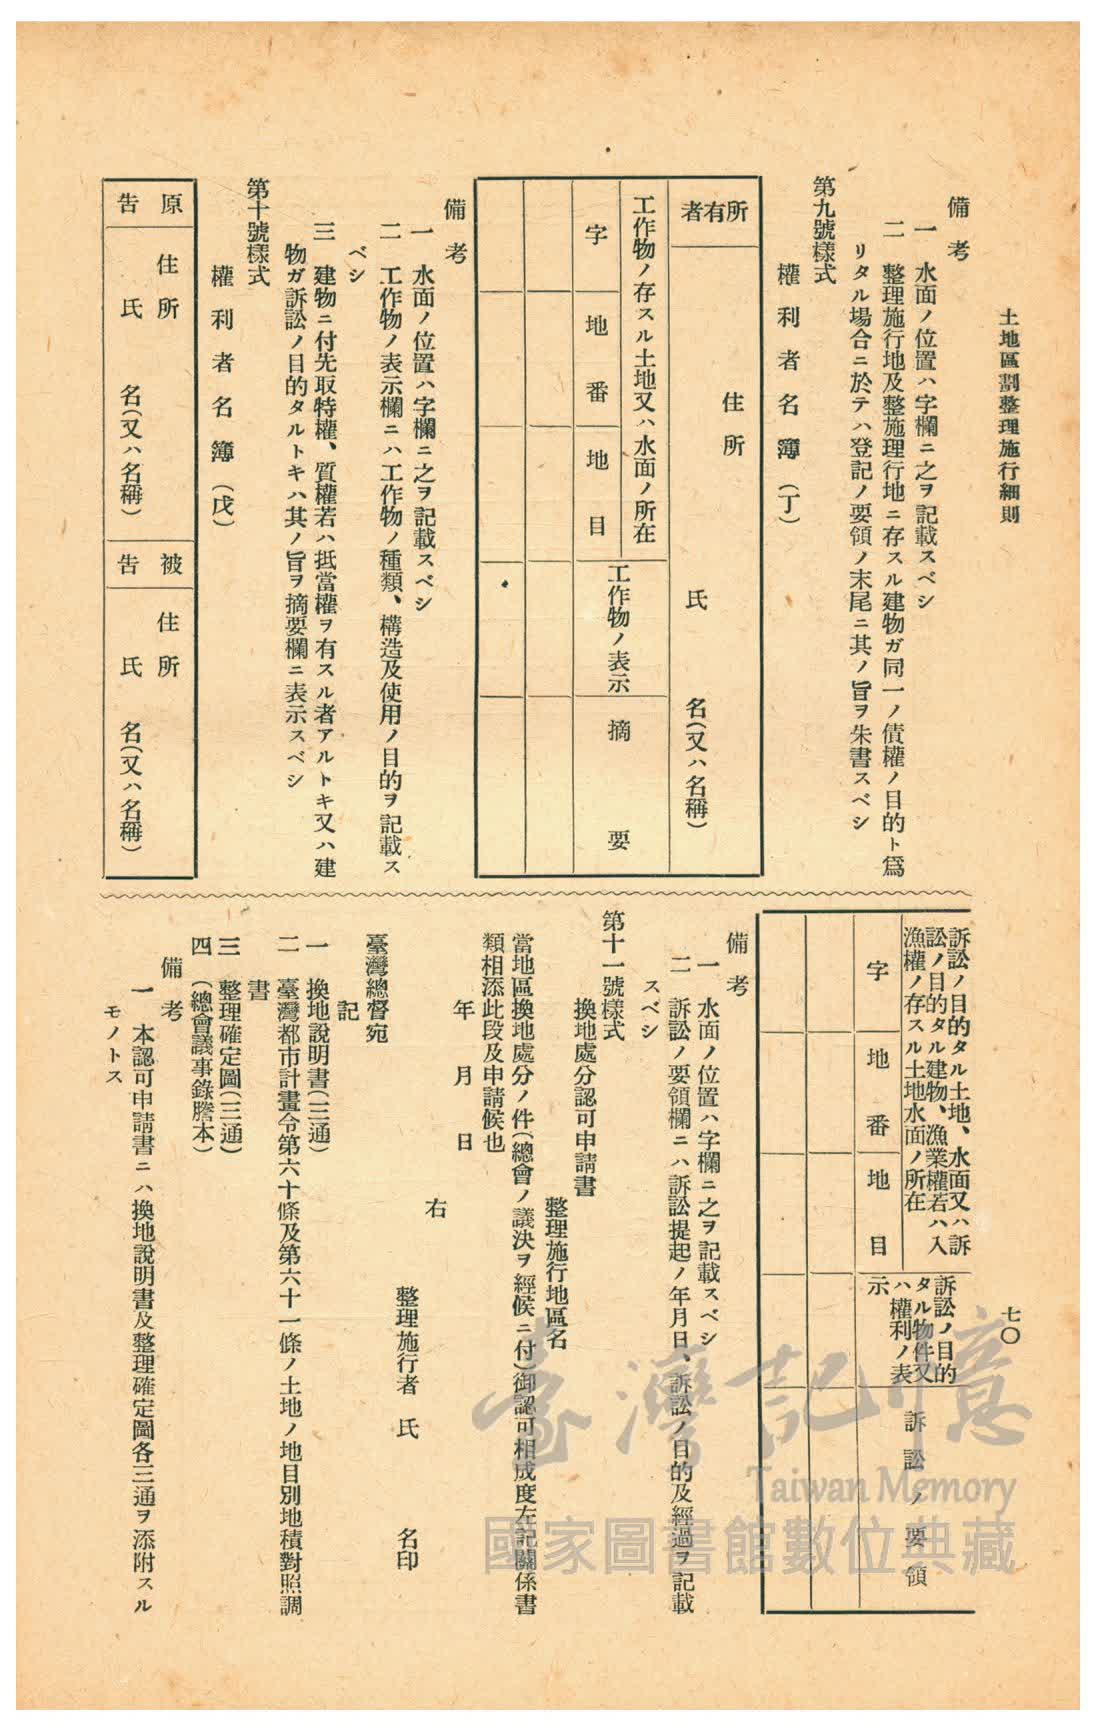 土地區劃整理施行細則
七〇
備考
一 水面ノ位置ハ字欄ニ之ヲ記載スベシ
二 整理施行地及整施理行地ニ存スル建物ガ同一ノ債權ノ目的ト爲
リタル場合ニ於テハ登記ノ要領ノ末尾ニ其ノ旨ヲ朱書スベシ
第九號樣式
權利者名簿(丁)
所有者
住所
氏名(又ハ名稱)
工作物ノ存スル土地又ハ水面ノ所在
字
地番
地目
工作物ノ表示
摘要
備考
一 水面ノ位置ハ字欄ニ之ヲ記載スベシ
二 工作物ノ表示欄ニハ工作物ノ種類、構造及使用ノ目的ヲ記載ス
ベシ
三 建物ニ付先取特權、質權若ハ抵當權ヲ有スル者アルトキ又ハ建
物ガ訴訟ノ目的タルトキハ其ノ旨ヲ摘要欄ニ表示スベシ
第十號樣式
權利者名簿(戊)
原告
住所
氏名(又ハ名稱)
被告
住所
氏名(又ハ名稱)
訴訟ノ目的タル土地、水面又ハ訴
訟ノ目的タル建物、漁業權若ハ入
漁權ノ存スル土地水面ノ所在
字
地番
地目
訴訟ノ目的
タル物件又
ハ權利ノ表
示
訴訟ノ要領
備考
一 水面ノ位置ハ字欄ニ之ヲ記載スベシ
二 訴訟ノ要領欄ニハ訴訟提起ノ年月日、訴訟ノ目的及經過ヲ記載
スベシ
第十一號樣式
換地處分認可申請書
整理施行地區名
當地區換地處分ノ件(總會ノ議決ヲ經候ニ付)御認可相成度左記關係書
類相添此段及申請候也
年月日
右
整理施行者 氏名印
臺灣總督宛
記
一 換地說明書(三通)
二 臺灣都市計畫令第六十條及第六十一條ノ土地ノ地目別地積對照調
書
三 整理確定圖(三通)
四 (總會議事錄謄本)
備考
一 本認可申請書ニハ換地說明書及整理確定圖各三通ヲ添附スル
モノトス
臺灣記憶
Taiwan Memory
國家圖書館數位典藏